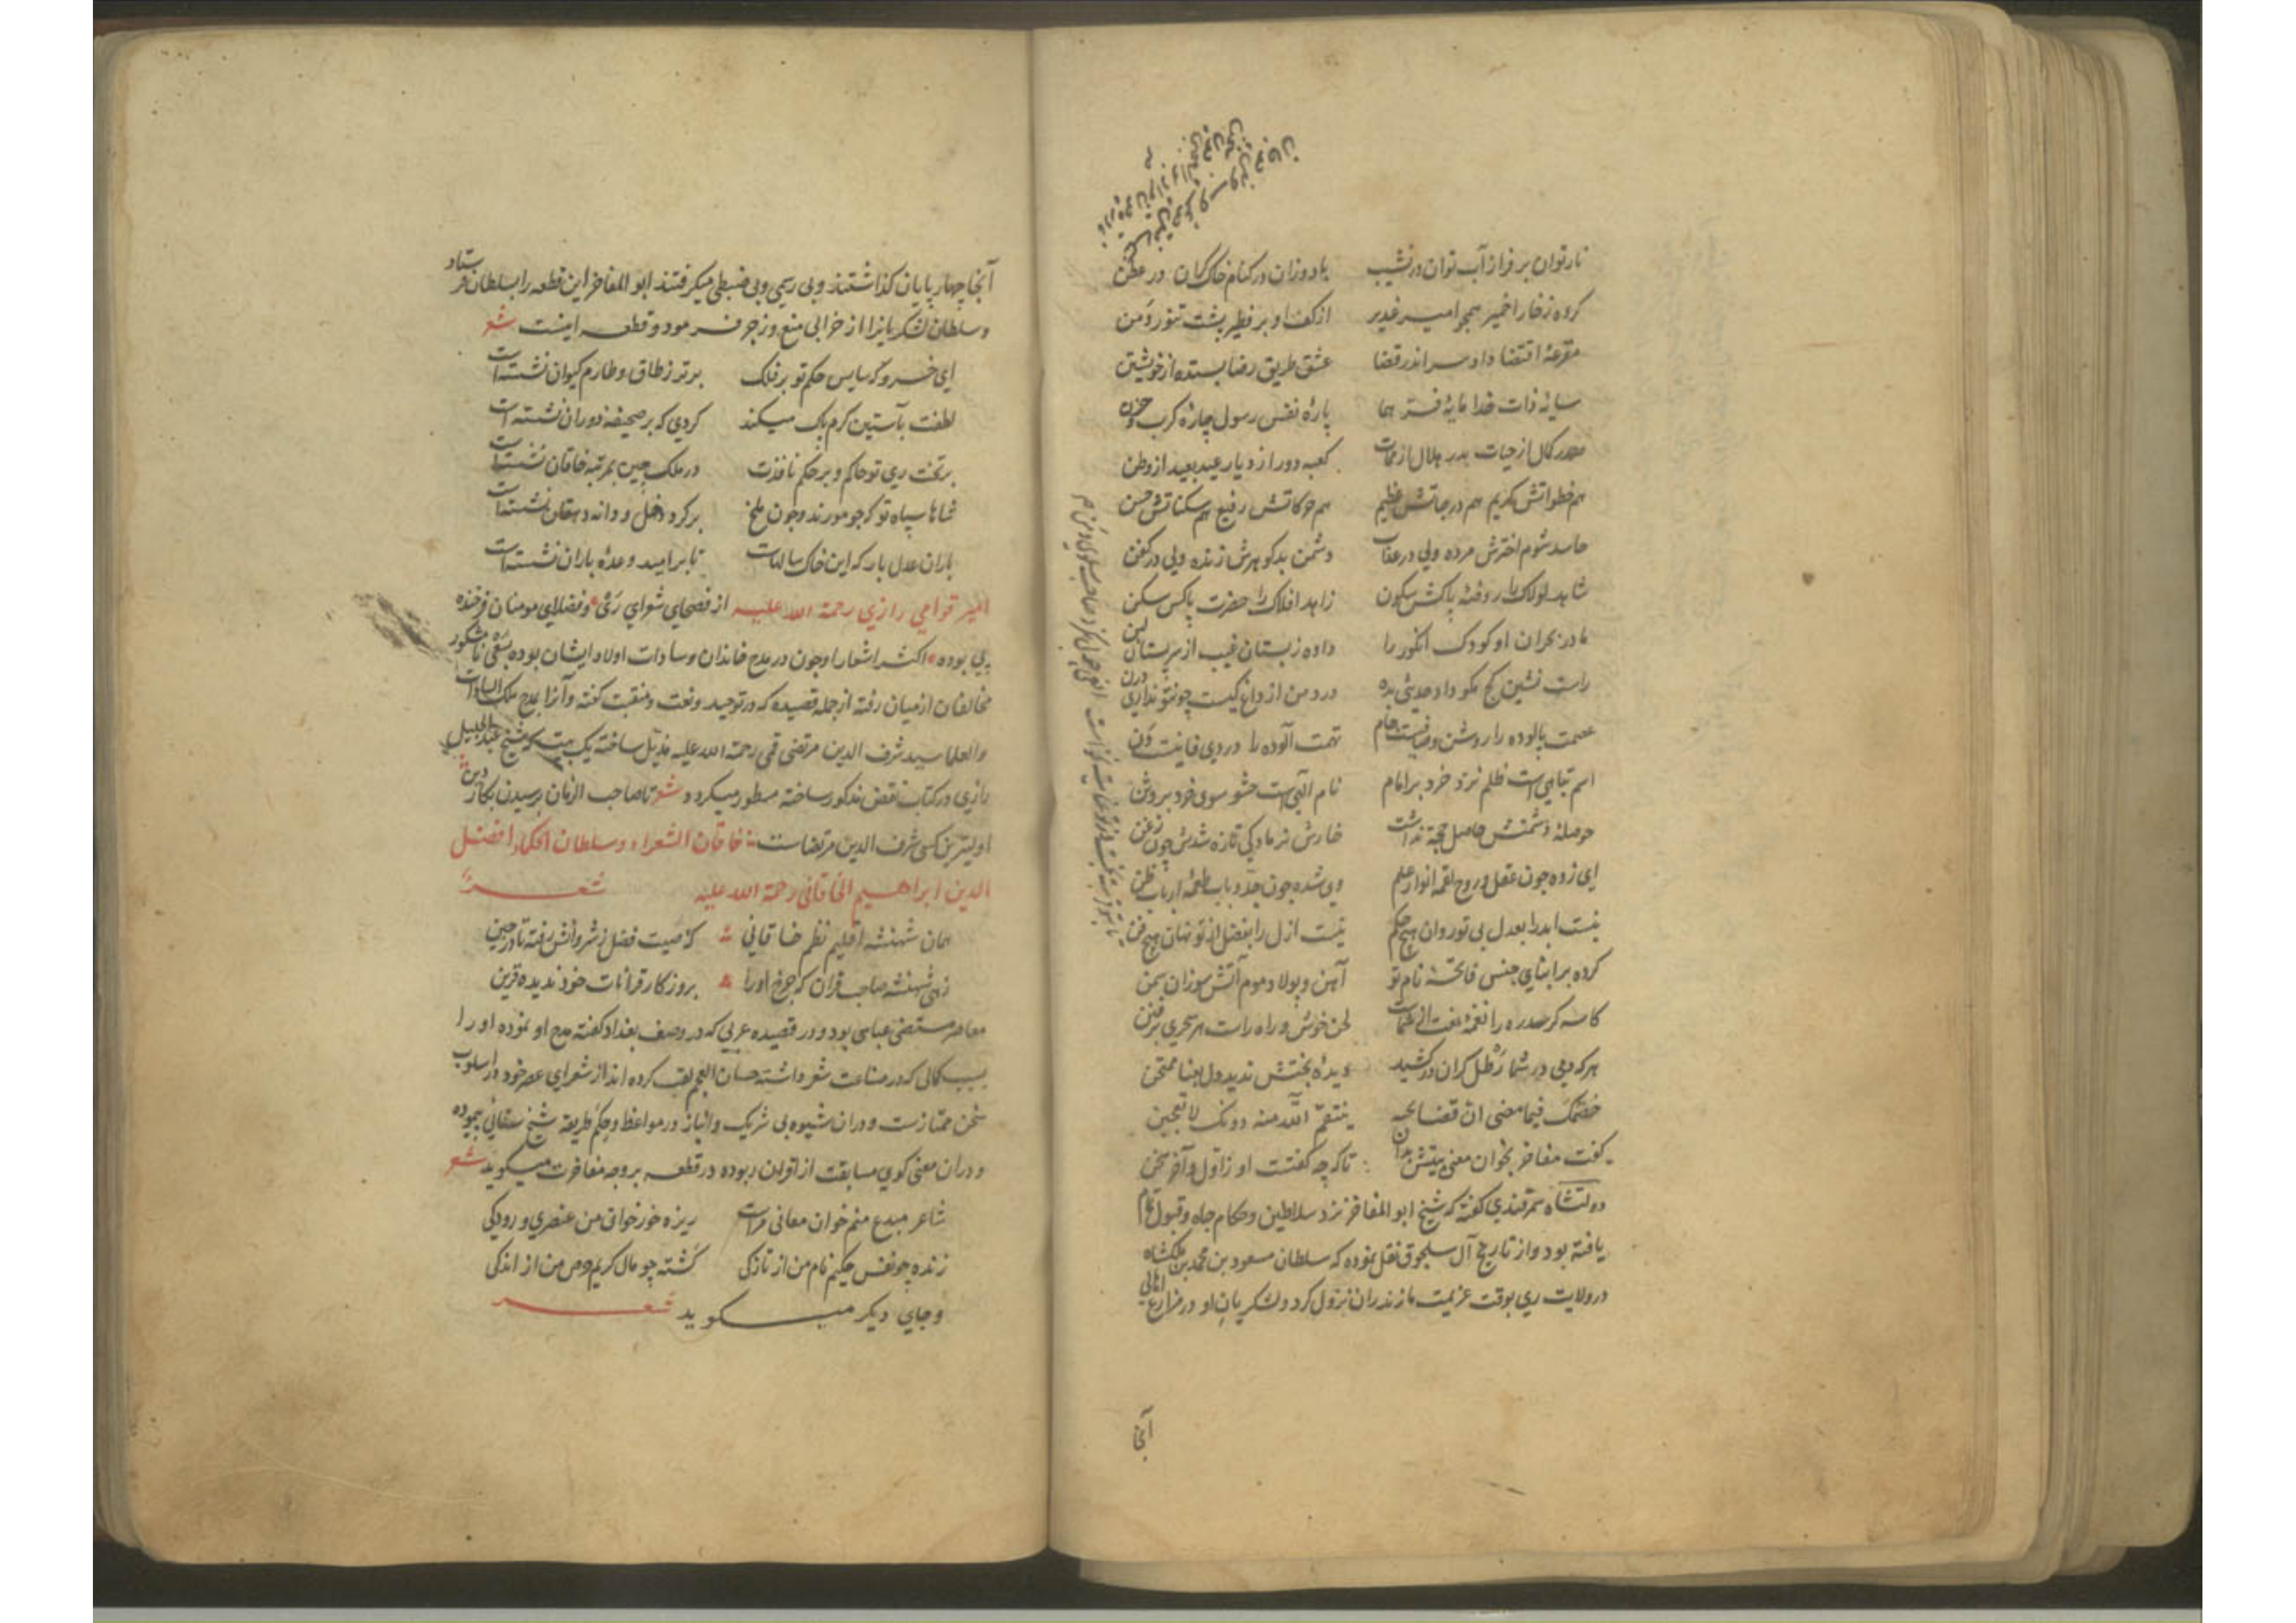 نار توان بر فراز آب توان در نشیب   باد وزان در کنام خاک کران در عطن
کرده ز فخار اخمیر همچو امیر غدیر   از کف او بر فطیر پشت تنور و من
مقرعهٔ اقتضا داد سر اندر قضا   عشق طریق رضا بستده از خویشتن
سایهٔ ذات خدا مایهٔ فر هما   پارهٔ نفس رسول چارهٔ کرب و حزن
صدر کمال از حیات بدر هلال از ممات   کعبه دور از دیار عید بعید از وطن
هم خطواتش کریم هم درجاتش عظیم   هم حرکاتش رفیع هم سکناتش حسن
حاسد شوم اخترش مرده ولی در عذاب   دشمن بدکوهرش زنده ولی در کفن
شاهد لولاک را روضهٔ پاکش سکون   زاهد افلاک را حضرت پاکس سکن
مادر بحران او کودک انکور را   داده ز بستان غیب از سر پستان لبن
راست نشین کج مکو داد حدیثی بده   درد من از داغ کیست چو نتو نداری درن
عصمت پالوده را روشن و صافیست جام   تهمت آلوده را دردی فانیت دن
اسم تباهی است ظلم نزد خرد بر امام   نام الهی است حشو سوی خرد بر وثن
حوصلهٔ دشمنش حاصل حجة نداشت   خارش نر مادکی تازه شدش چون زغن
ای زده چون عقل و روح لقمهٔ انوار علم   وی شده چون جد و باب طعمهٔ ارباب ظن
نیست ابد را بعدل بی تو روان هیچ حکم   نیست ازل را بفضل از تو نهان هیچ فن
کرده بر ابنای جنس فاتحهٔ نام تو   آهن و پولاد و موم آتش سوزان سمن
کاسه کر سدره را نغمهٔ نعت   لحن خوش و راه راست هر سحری بر فنن
هر که دمی در شما رطل کران در کشید   دیدهٔ بختش ندید دل بعنا ممتحن
خصمک فیما مضی ان قضا نحبه   ینتقم الله منه دونک لا تعجبن
گفت مفاخر بخوان معنی بیتش بدان   تا که چه گفتت او ز اول و آخر سخن
دولتشاه سمرقندی گفته که شیخ ابو المفاخر نزد سلاطین و حکام جاه و قبول تمام
یافته بود و از تاریخ آل سلجوق نقل نموده که سلطان مسعود بن محمد بن ملکشاه
در ولایت ری بوقت عزیمت مازندران نزول کرد و لشکریان او در مزارع اهالی
آنجا
آنجا چهارپایان گذاشتند و بی رسمی و بی ضبطی میکرفتند ابو المفاخر این قطعه را بسلطان فرستاد
و سلطان لشکریانرا از خرابی منع و زجر فرمود و قطعه اینست شعر
ای خسروی که سایس حکم تو بر فلک   برتر ز طاق و طارم کیوان نشسته است
لطفت بآستین کرم پاک میکند   کردی که بر صحیفهٔ دوران نشسته است
بر تخت ری تو حاکم و بر حکم نافذت   در ملک چین بمرتبه خاقان نشسته است
شاها سپاه تو که چو مورند و چون ملخ   بر کرد دخل و دانه دهقان نشسته است
باران عدل بار که این خاک سالهاست   تا بر امید وعدهٔ باران نشسته است
امیر قوامی رازی رحمة الله علیه از فصحای شعرای ری و فضلای مومنان فرخنده
پی بوده اکثر اشعار او چون در مدح خاندان و سادات اولاد ایشان بوده بسعی نامشکور
مخالفان از میان رفته از جمله قصیده که در توحید و نعت و منقبت گفته و آنرا بمدح ملک السادات
والعلما سید شرف الدین مرتضی قمی رحمة الله علیه مذیل ساخته یک بیت که شیخ عبد الجلیل
رازی در کتاب نقض مذکور ساخته مسطور میکردد شعر تا صاحب الزمان برسیدن بکار دین
اولیترین کسی شرف الدین مرتضاست خاقان الشعراء و سلطان الحکماء افضل
الدین ابراهیم الخاقانی رحمة الله علیه شعر
همان شهنشه اقلیم نظم خاقانی   که صیت فضل ز شروانش رفته تا در چین
زهی شهنشه صاحب قران که چرخ او را   بروزکار قرانات خود ندیده قرین
معاصر مستضی عباسی بود و در قصیده عربی که در وصف بغداد گفته مدح او نموده او را
بسبب کمالی که در صناعت شعر داشته حسان العجم لقب کرده اند از شعرای عصر خود در اسلوب
سخن ممتازست و در ان شیوه بی شریک و انباز در مواعظ و حکم طریقه شیخ سنائی پیموده
و در ان معنی کوی مسابقت از اقران ربوده در قطعه بر وجه مفاخرت میکوید شعر
شاعر مبدع منم خوان معانی مراست   ریزه خور خوان من عنصری و رودکی
زنده چو نفس حکیم نام من از تازکی   کشته چو مال کریم حرص من از اندکی
و جای دیکر میکوید شعر